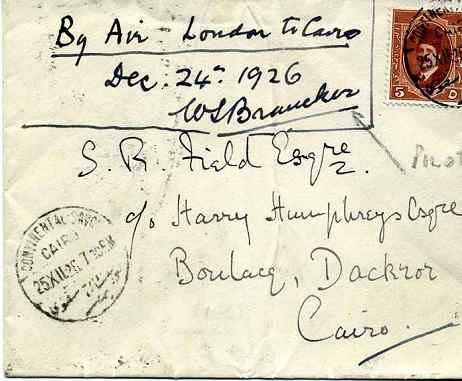 By Air London to Cairo
Dec. 24th 1926
WS Brancker
5
S. R. Field Esqre
c/o Harry Humphreys Esqre
Boulacq, Dackror
Cairo.
CONTINENTAL-SAVOY
CAIRO
25 XII 26 7 30 PM